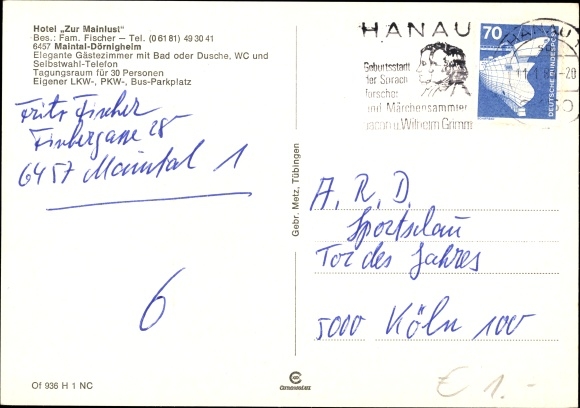 Hotel „Zur Mainlust“
Bes.: Fam. Fischer – Tel. (0 61 81) 49 30 41
6457 Maintal-Dörnigheim
Elegante Gästezimmer mit Bad oder Dusche, WC und
Selbstwahl-Telefon
Tagungsraum für 30 Personen
Eigener LKW-, PKW-, Bus-Parkplatz
Fritz Fischer
Fischergasse 28
6457 Maintal 1
6
Of 936 H 1 NC
Gebr. Metz, Tübingen
HANAU
Geburtsstadt
der Sprach
forscher
und Märchensammler
Jacob u. Wilhelm Grimm
HANAU
70
DEUTSCHE BUNDESPOST
A. R. D.
Sportschau
Tor des Jahres
5000 Köln 100
€ 1.-